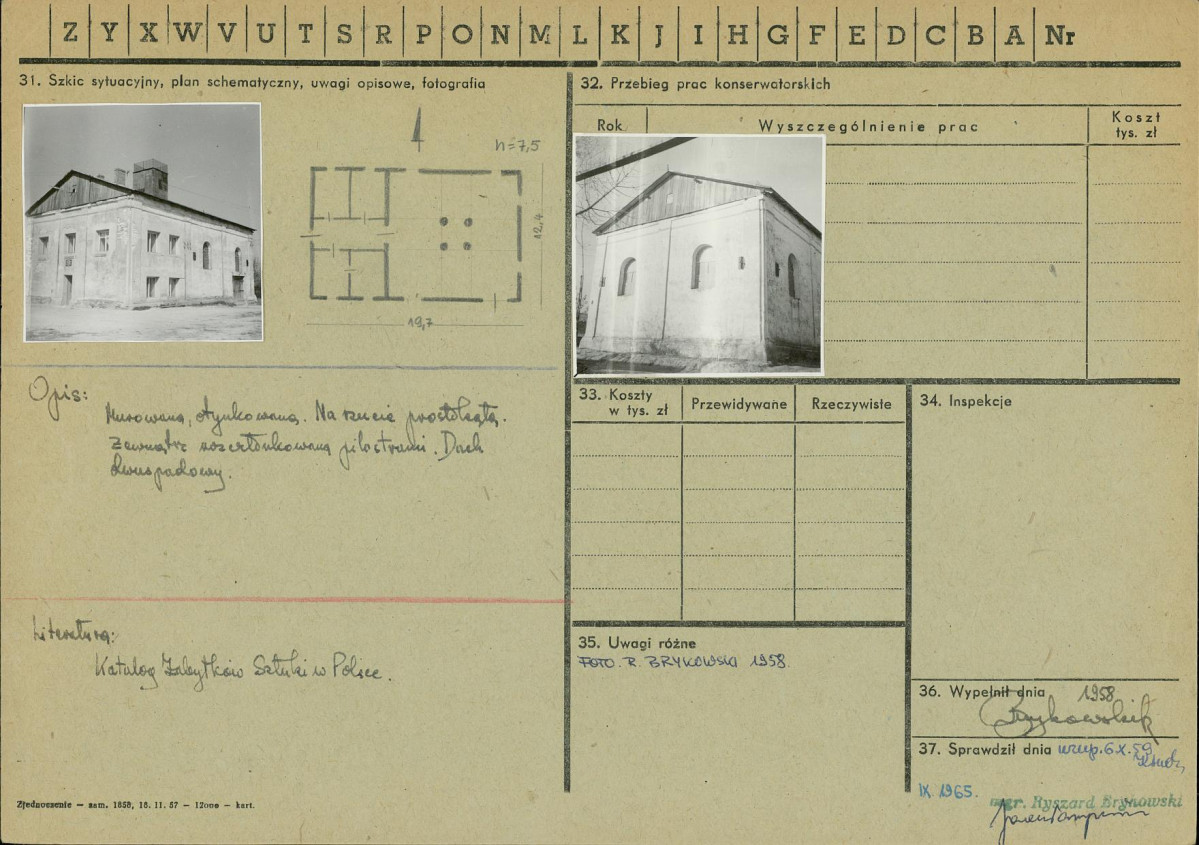 Z Y X W V U T S R P O N M L K J I H G F E D C B A Nr
31. Szkic sytuacyjny, plan schematyczny, uwagi opisowe, fotografia
h=7,5
12,4
19,7
Opis:
Murowana, otynkowana. Na rzucie prostokąta.
Zewnątrz rozczłonkowana pilastrami. Dach
dwuspadowy.
Literatura:
Katalog Zabytków Sztuki w Polsce.
Zjednoczenie — zam. 1858, 16. 11. 57 — 12000 — kart.
32. Przebieg prac konserwatorskich
Rok
Wyszczególnienie prac
Koszt
tys. zł
33. Koszty
w tys. zł
Przewidywane
Rzeczywiste
34. Inspekcje
35. Uwagi różne
FOTO. R. BRYKOWSKI 1958.
36. Wypełnił dnia 1958
Brykowski R
37. Sprawdził dnia uzup. 6 X. 59
IX. 1965.
mgr. Ryszard Brykowski